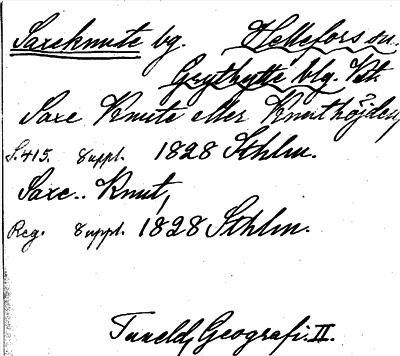 Saxeknute bg. Hellefors sn.
Grythytte blg. Vstm.
Saxe Knute eller Knuthöjden,
S. 415. Suppl. 1828 Sthlm.
Saxe.. Knut,
Reg. Suppl. 1828 Sthlm.
Tuneld, Geografi. II.